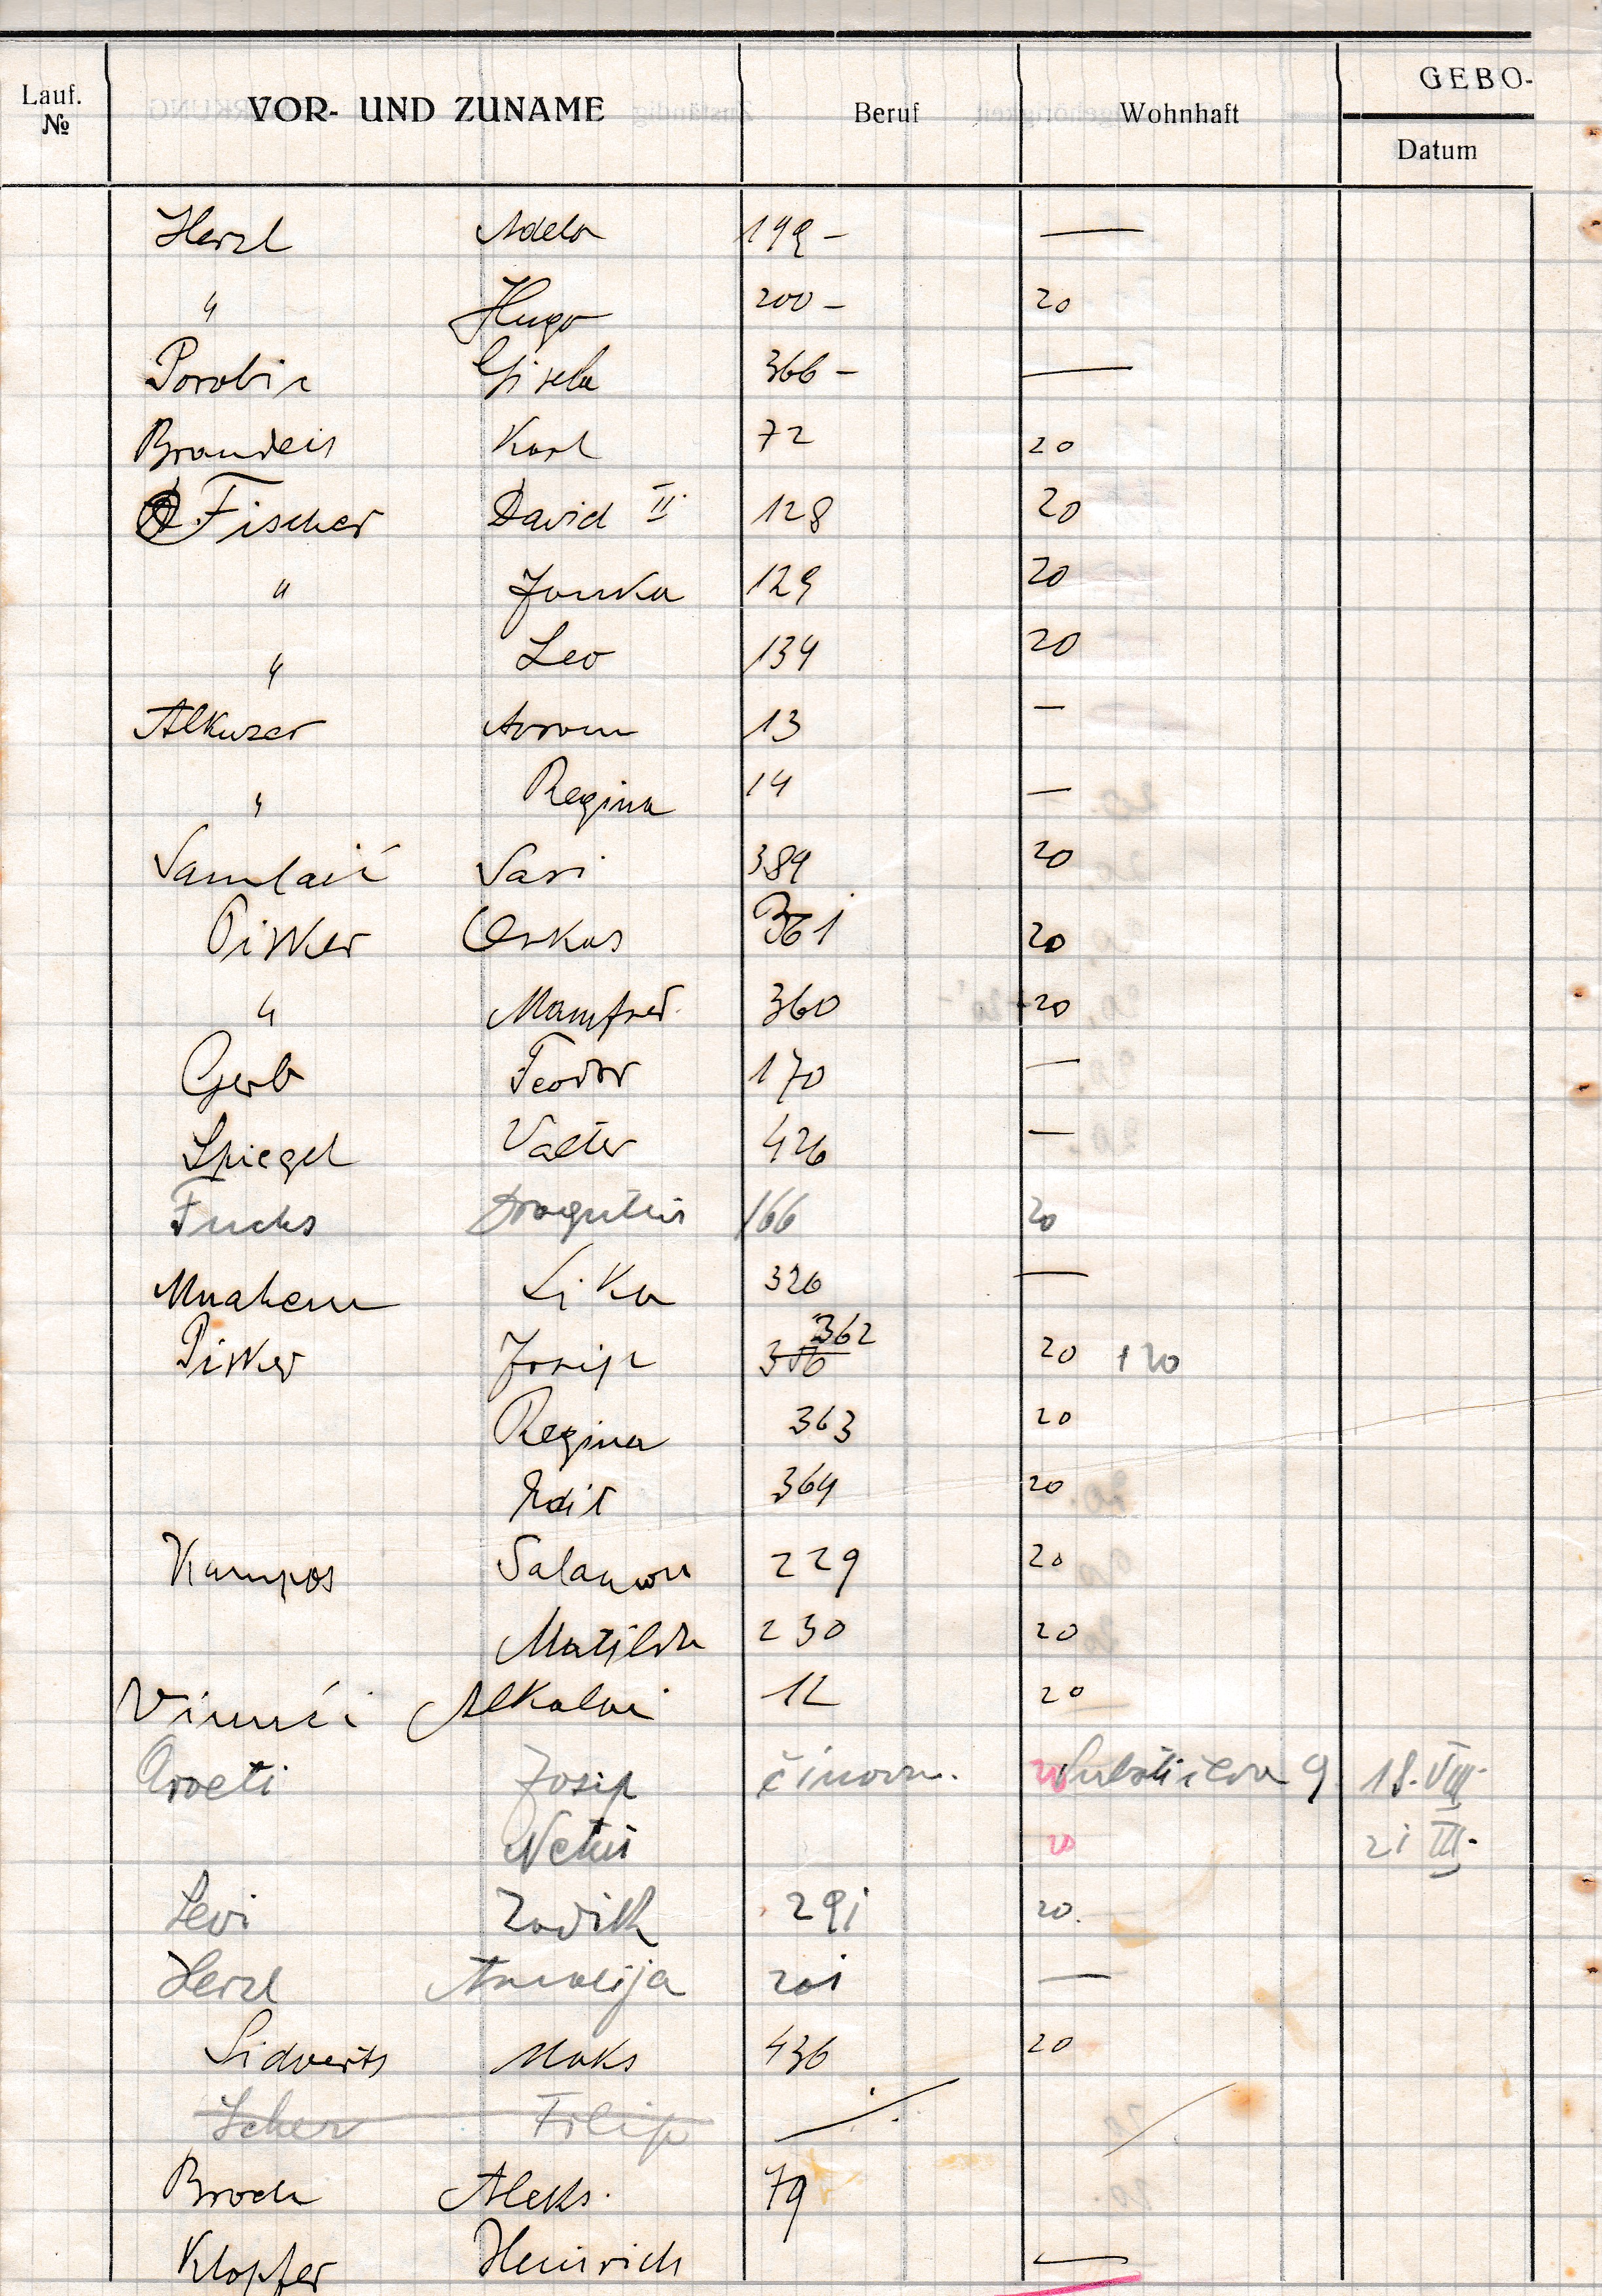 Lauf. № VOR- UND ZUNAME Beruf Wohnhaft GEBO-
Datum
Herzl Adela 199 – —
" Hugo 200 – 20
Gisela 366 – —
Brandeis Karl 72 20
Fischer David II. 128 20
" Janka 129 20
" Leo 134 20
Alkuser Avram 13 —
" Regina 14 —
Samlaić Sari 389 20
Pisker Oskar 361 20
" Manfred. 360 20
Gerb Teodor 170 —
Spiegel Valter 426 —
Fuchs Dragutin 166 20
Lika 326 —
362
Pisker Josip 20 +20
Regina 363 20
Edit 364 20
Kampos Salamon 229 20
Matilda 230 20
Alkalai 12 20
Aroeti Josip činovn. 20 9 18. VIII.
20 21 III.
Levi Zadik 291 20.
Herzl Amalija 201 —
Sidverts Maks 436 20
Scher Filip
Broch Aleks. 79
Klopfer Heinrich —